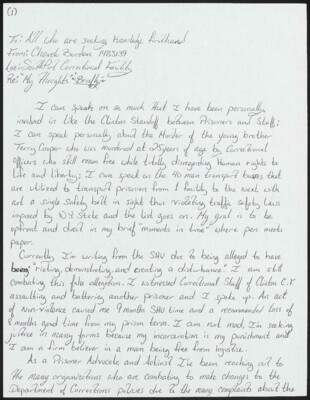 (1)
To: All who are seeking Knowledge firsthand
From:
Correctional Facility
Re: "My Thoughts" "Briefly"
I can speak on so much that I have been personally
involved in like the Clinton Standoff between Prisoners and Staff;
I can speak personally about the Murder of the young brother
Terry Cooper who was murdered at 25 years of age by Correctional
officers who still roam free while totally disregarding Human rights to
Life and liberty; I can speak on the 40 man transport buses that
are utilized to transport prisoners from 1 facility to the next with
not a single safety belt in sight thus violating traffic safety laws
imposed by NY State and the list goes on. My goal is to be
upfront and direct in my brief "moments in time" where pen meets
paper.
Currently I'm writing from the SHU due to being alleged to have
been "rioting, demonstrating, and creating a disturbance". I am still
combating this false allegation. I witnessed Correctional Staff of Clinton C.F.
assaulting and battering another prisoner and I spoke up. An act
of non-violence caused me 9 months SHU time and a recommended loss of
months good time from my prison term. I am not mad, I'm seeking
justice in many forms because my incarceration is my punishment and
I am a firm believer in a man being free from injustice.
As a Prisoner Advocate and Activist I've been reaching out to
the many organizations who are combating to make changes to the
Department of Corrections policies due to the many complaints about the